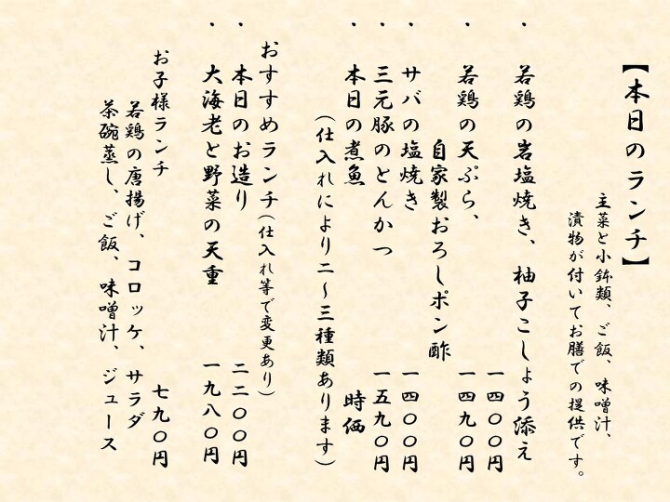 【本日のランチ】
主菜と小鉢類、ご飯、味噌汁、
漬物が付いてお膳での提供です。
・若鶏の岩塩焼き、柚子こしょう添え
一四〇〇円
・若鶏の天ぷら、 一四九〇円
自家製おろしポン酢
・サバの塩焼き 一四〇〇円
・三元豚のとんかつ 一五九〇円
・本日の煮魚 時価
（仕入れにより二～三種類あります）
おすすめランチ（仕入れ等で変更あり）
・本日のお造り 二二〇〇円
・大海老と野菜の天重 一九八〇円
お子様ランチ 七九〇円
若鶏の唐揚げ、コロッケ、サラダ
茶碗蒸し、ご飯、味噌汁、ジュース